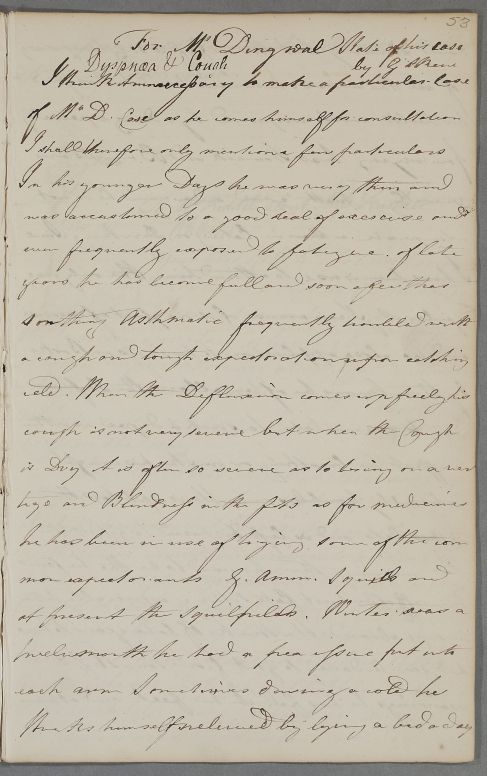 53
For Mr Dingwal State of his case
Dyspnœa & Cough by G Skene
I think it unnecessary to make a particular Case
of Mr D. Case as he comes himself for consultation
I shall therefore only mention a few particulars
In his younger Days he was very thin and
was accustomed to a good deal of excercise and
even frequently exposed to fatigue. of late
years he has become full and soon after that
somthing Asthmatic frequently troubled with
a cough and tough expectoration upon catching
cold. When the Defluxion comes up freely his
cough is not very severe but when the Cough
is Dry it is often so severe as to bring on a ver
tigo and Blindness in the fits as for medicines
he has been in use of trying some of the com
mon expectorants G. Amm. Squills and
at present the Squil pills. Winter was a
twelvemonth he had a pea issue put into
each arm Sometimes during a cold he
thinks himself relieved by lying a bed a day